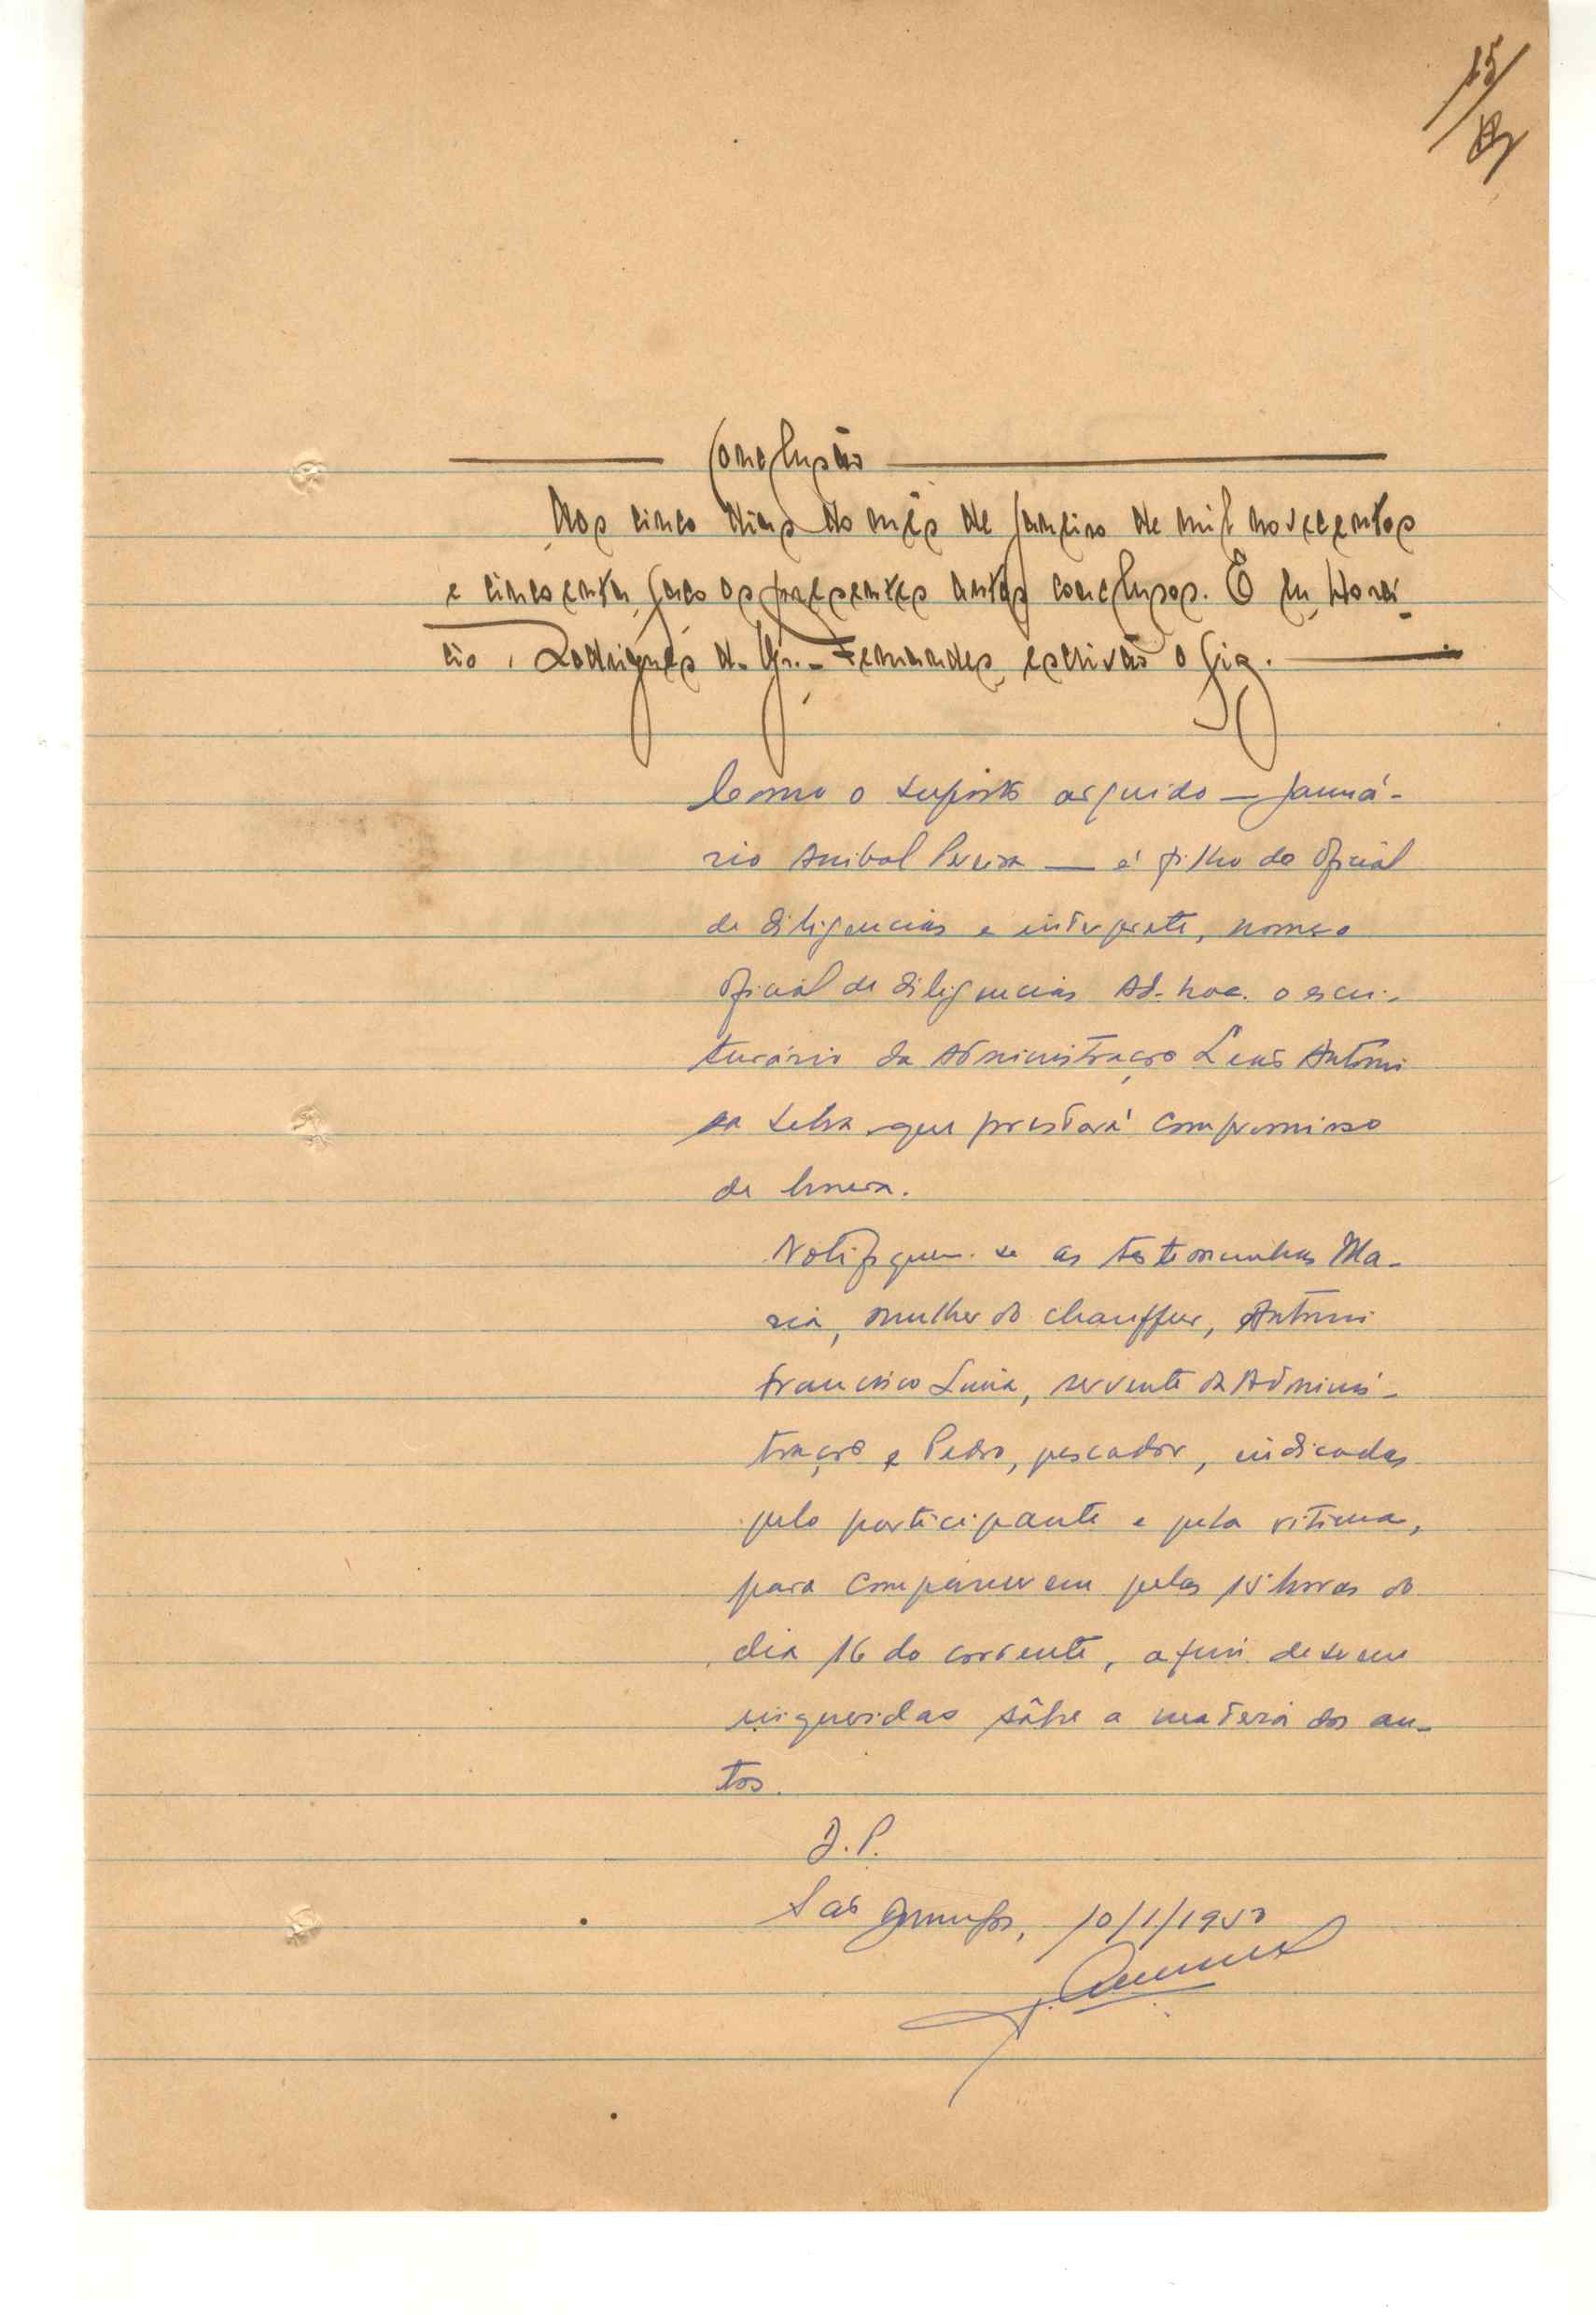 15
Conclusão
Aos cinco dias do mês de Janeiro de mil novecentos
e cincoenta, faço os presentes autos conclusos. E eu, Horá-
cio Rodrigues Fernandes, escrivão o fiz.
Como o suposto arguido — Januá-
rio Anibal Pereira — é filho do oficial
de diligencias e interprete, nomeo
oficial de diligencias Ad-hoc. o escri-
turário da Administração Luís António
da Selva que prestará compromisso
de honra.
Notifiquem-se as testemunhas Ma-
ria, mulher do chauffeur, António
Francisco Luiz, servente da Adminis-
tração e Pedro, pescador, indicadas
pelo participante e pela vitima,
para comparecerem pelas 15 horas do
dia 16 do corrente, a fim de serem
inqueridas sôbre a materia dos au-
tos.
D.P.
São Domingos, 10/1/1950